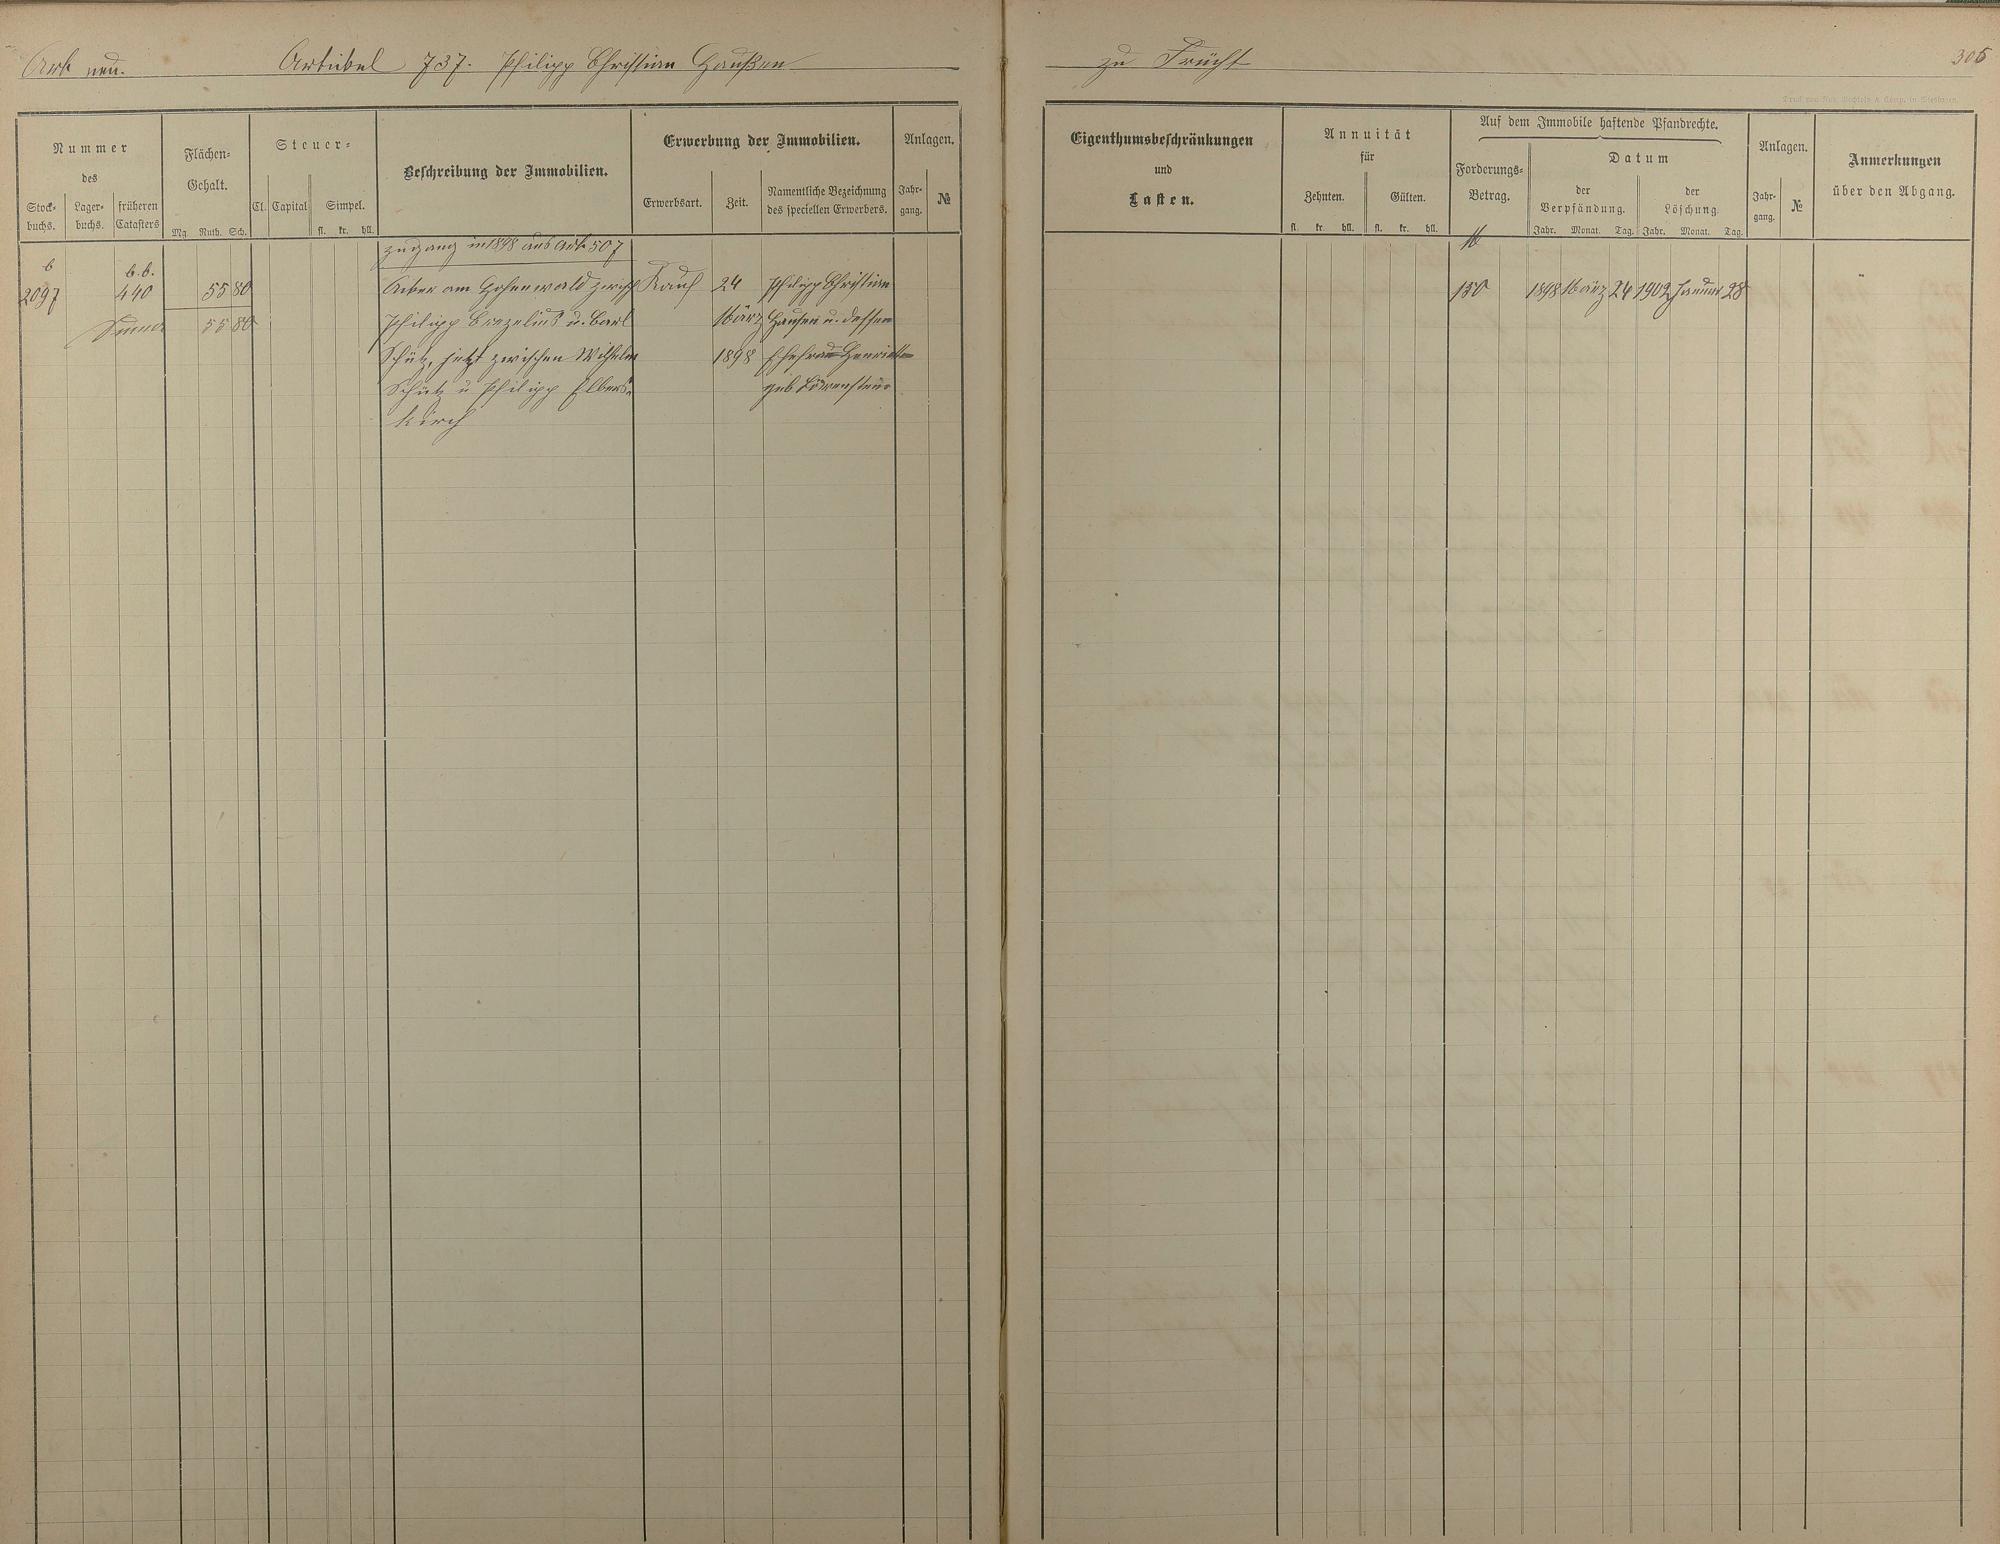 Art. neu. Artikel 737. Philipp Christian Haußen zu Frücht 305
Druck von Rud. Bechtold & Comp. in Wiesbaden.
Nummer
des
Stock-
buchs.
Lager-
buchs.
früheren
Catasters
Flächen-
Gehalt.
Mg. Ruth. Sch.
Steuer-
Cl. Capital Simpel.
fl. kr. hll.
Beschreibung der Immobilien.
Erwerbung der Immobilien.
Erwerbsart. Zeit.
Namentliche Bezeichnung
des speciellen Erwerbers.
Anlagen.
Jahr-
gang.
№
Eigenthumsbeschränkungen
und
Lasten.
Annuität
für
Zehnten. Gülten.
fl. kr. hll. fl. kr. hll.
Auf dem Immobile haftende Pfandrechte.
Forderungs-
Betrag.
Datum
der
Verpfändung.
der
Löschung.
Jahr. Monat. Tag. Jahr. Monat. Tag.
Anlagen.
Jahr-
gang.
№
Anmerkungen
über den Abgang.
Zugang in 1898 aus Art. 507
b b.b.
2097 440 55 80 Acker am Hohenwald zwisch Kauf 24 Philipp Christian 150 1898 März 24 1902 Januar 28
Summa 55 80 Philipp Crezelius u. Carl März Hausen u. dessen
Schütz, jetzt zwischen Wilhelm 1898 Ehefrau Henriette
Schütz u Philipp Elbers- geb Löwenstein
kirch